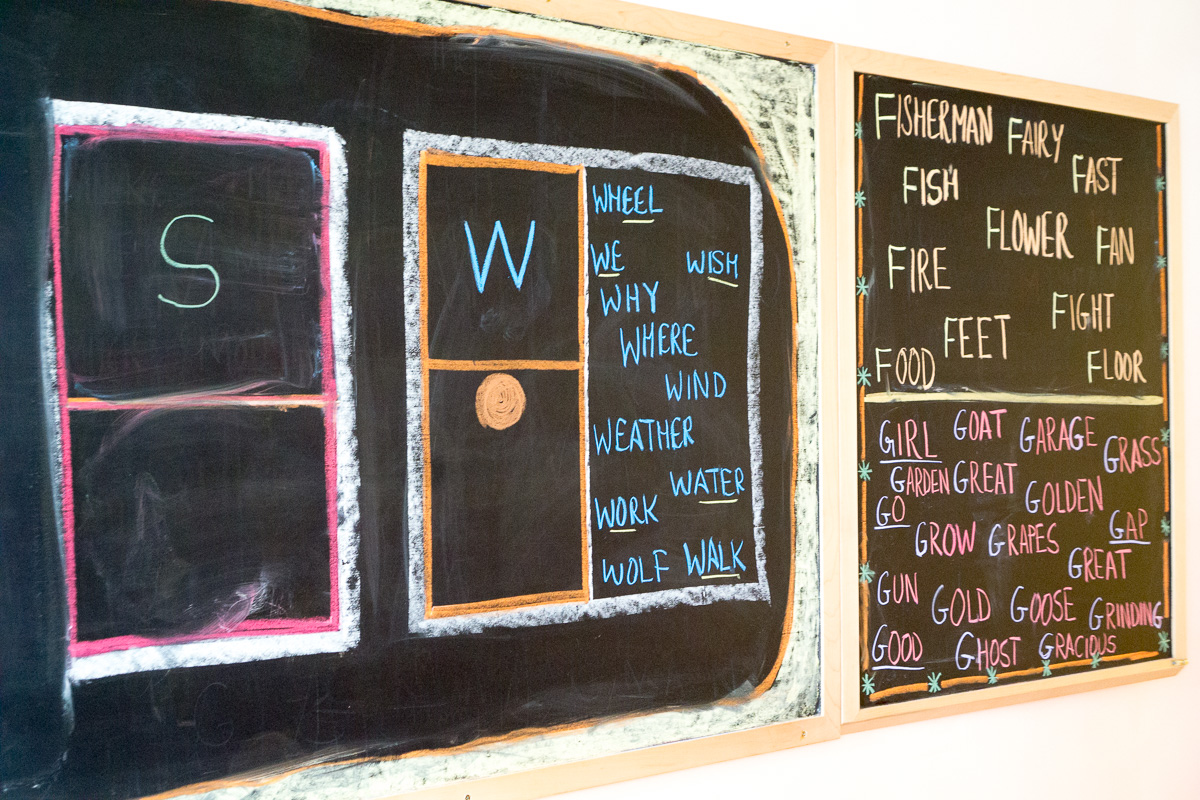 S
W
WHEEL
WE WISH
WHY
WHERE
WIND
WEATHER
WATER
WORK
WOLF WALK
FISHERMAN FAIRY
FISH FAST
FLOWER FAN
FIRE
FIGHT
FEET
FOOD FLOOR
GIRL GOAT GARAGE GRASS
GARDEN GREAT GOLDEN
GO
GROW GRAPES GAP
GREAT
GUN GOLD GOOSE GRINDING
GOOD GHOST GRACIOUS